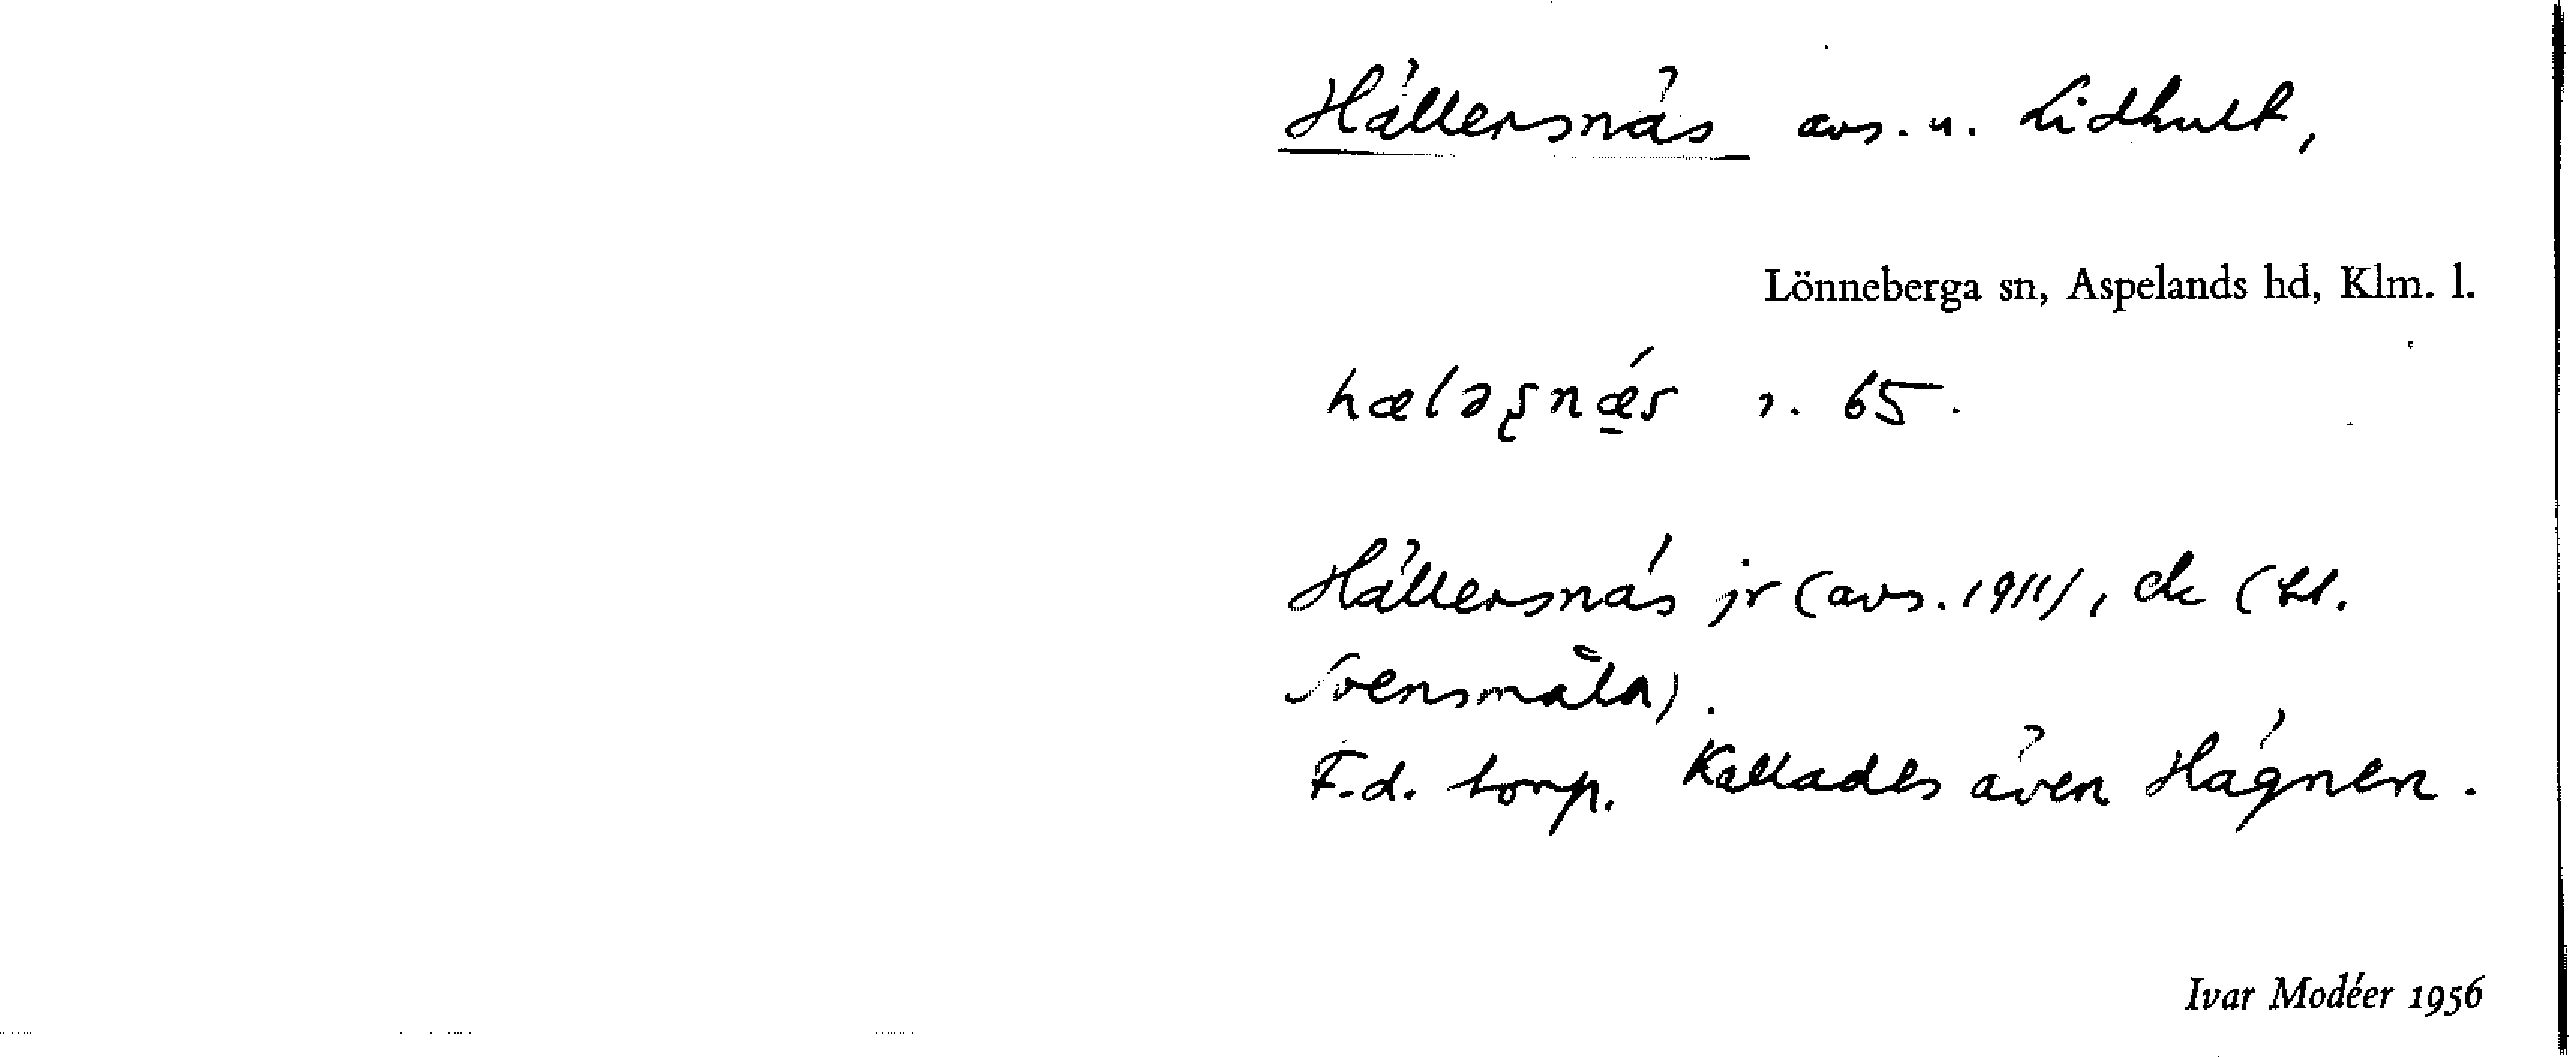 Hällersnäs avs. u. Lidhult,
Lönneberga sn, Aspelands hd, Klm. l.
hæləʂnǽ̱s 65.
Hällersnäs jr (avs. 1911), ek (bl.
Svensmåla).
F.d. torp. Kallades även Hägnen.
Ivar Modéer 1956